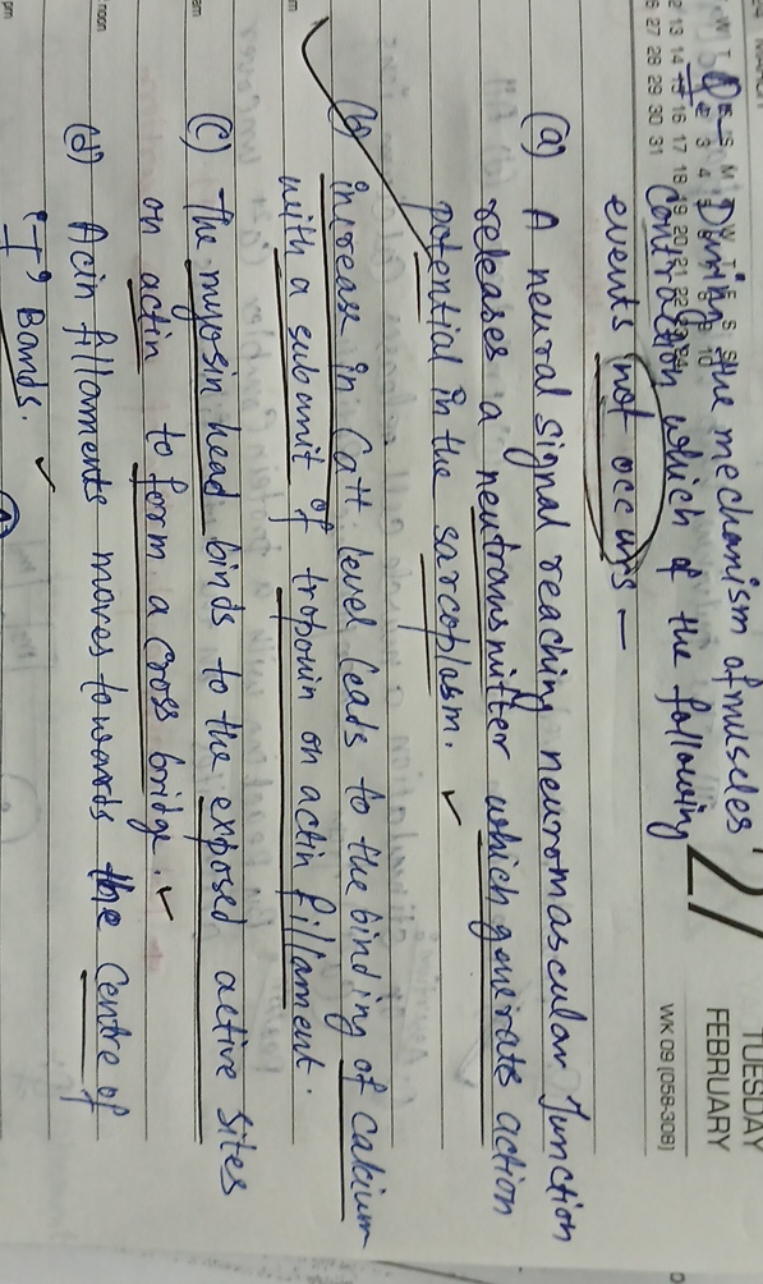 TUESDAY
FEBRUARY
27
WK 09 (058-308)
During the mechanism of muscles
Contraction which of the following
events not occurs —
(a) A neural signal reaching neuromascular Junction
releases a neutransmitter which generate action
potential in the sarcoplasm.
(b) increase in Ca++ level leads to the binding of calcium
with a subunit of troponin on actin fillament.
(c) The myosin head binds to the exposed active sites
on actin to form a cross bridge.
(d) Acin fillaments moves towards the centre of
'I' Bands.
noon
pm